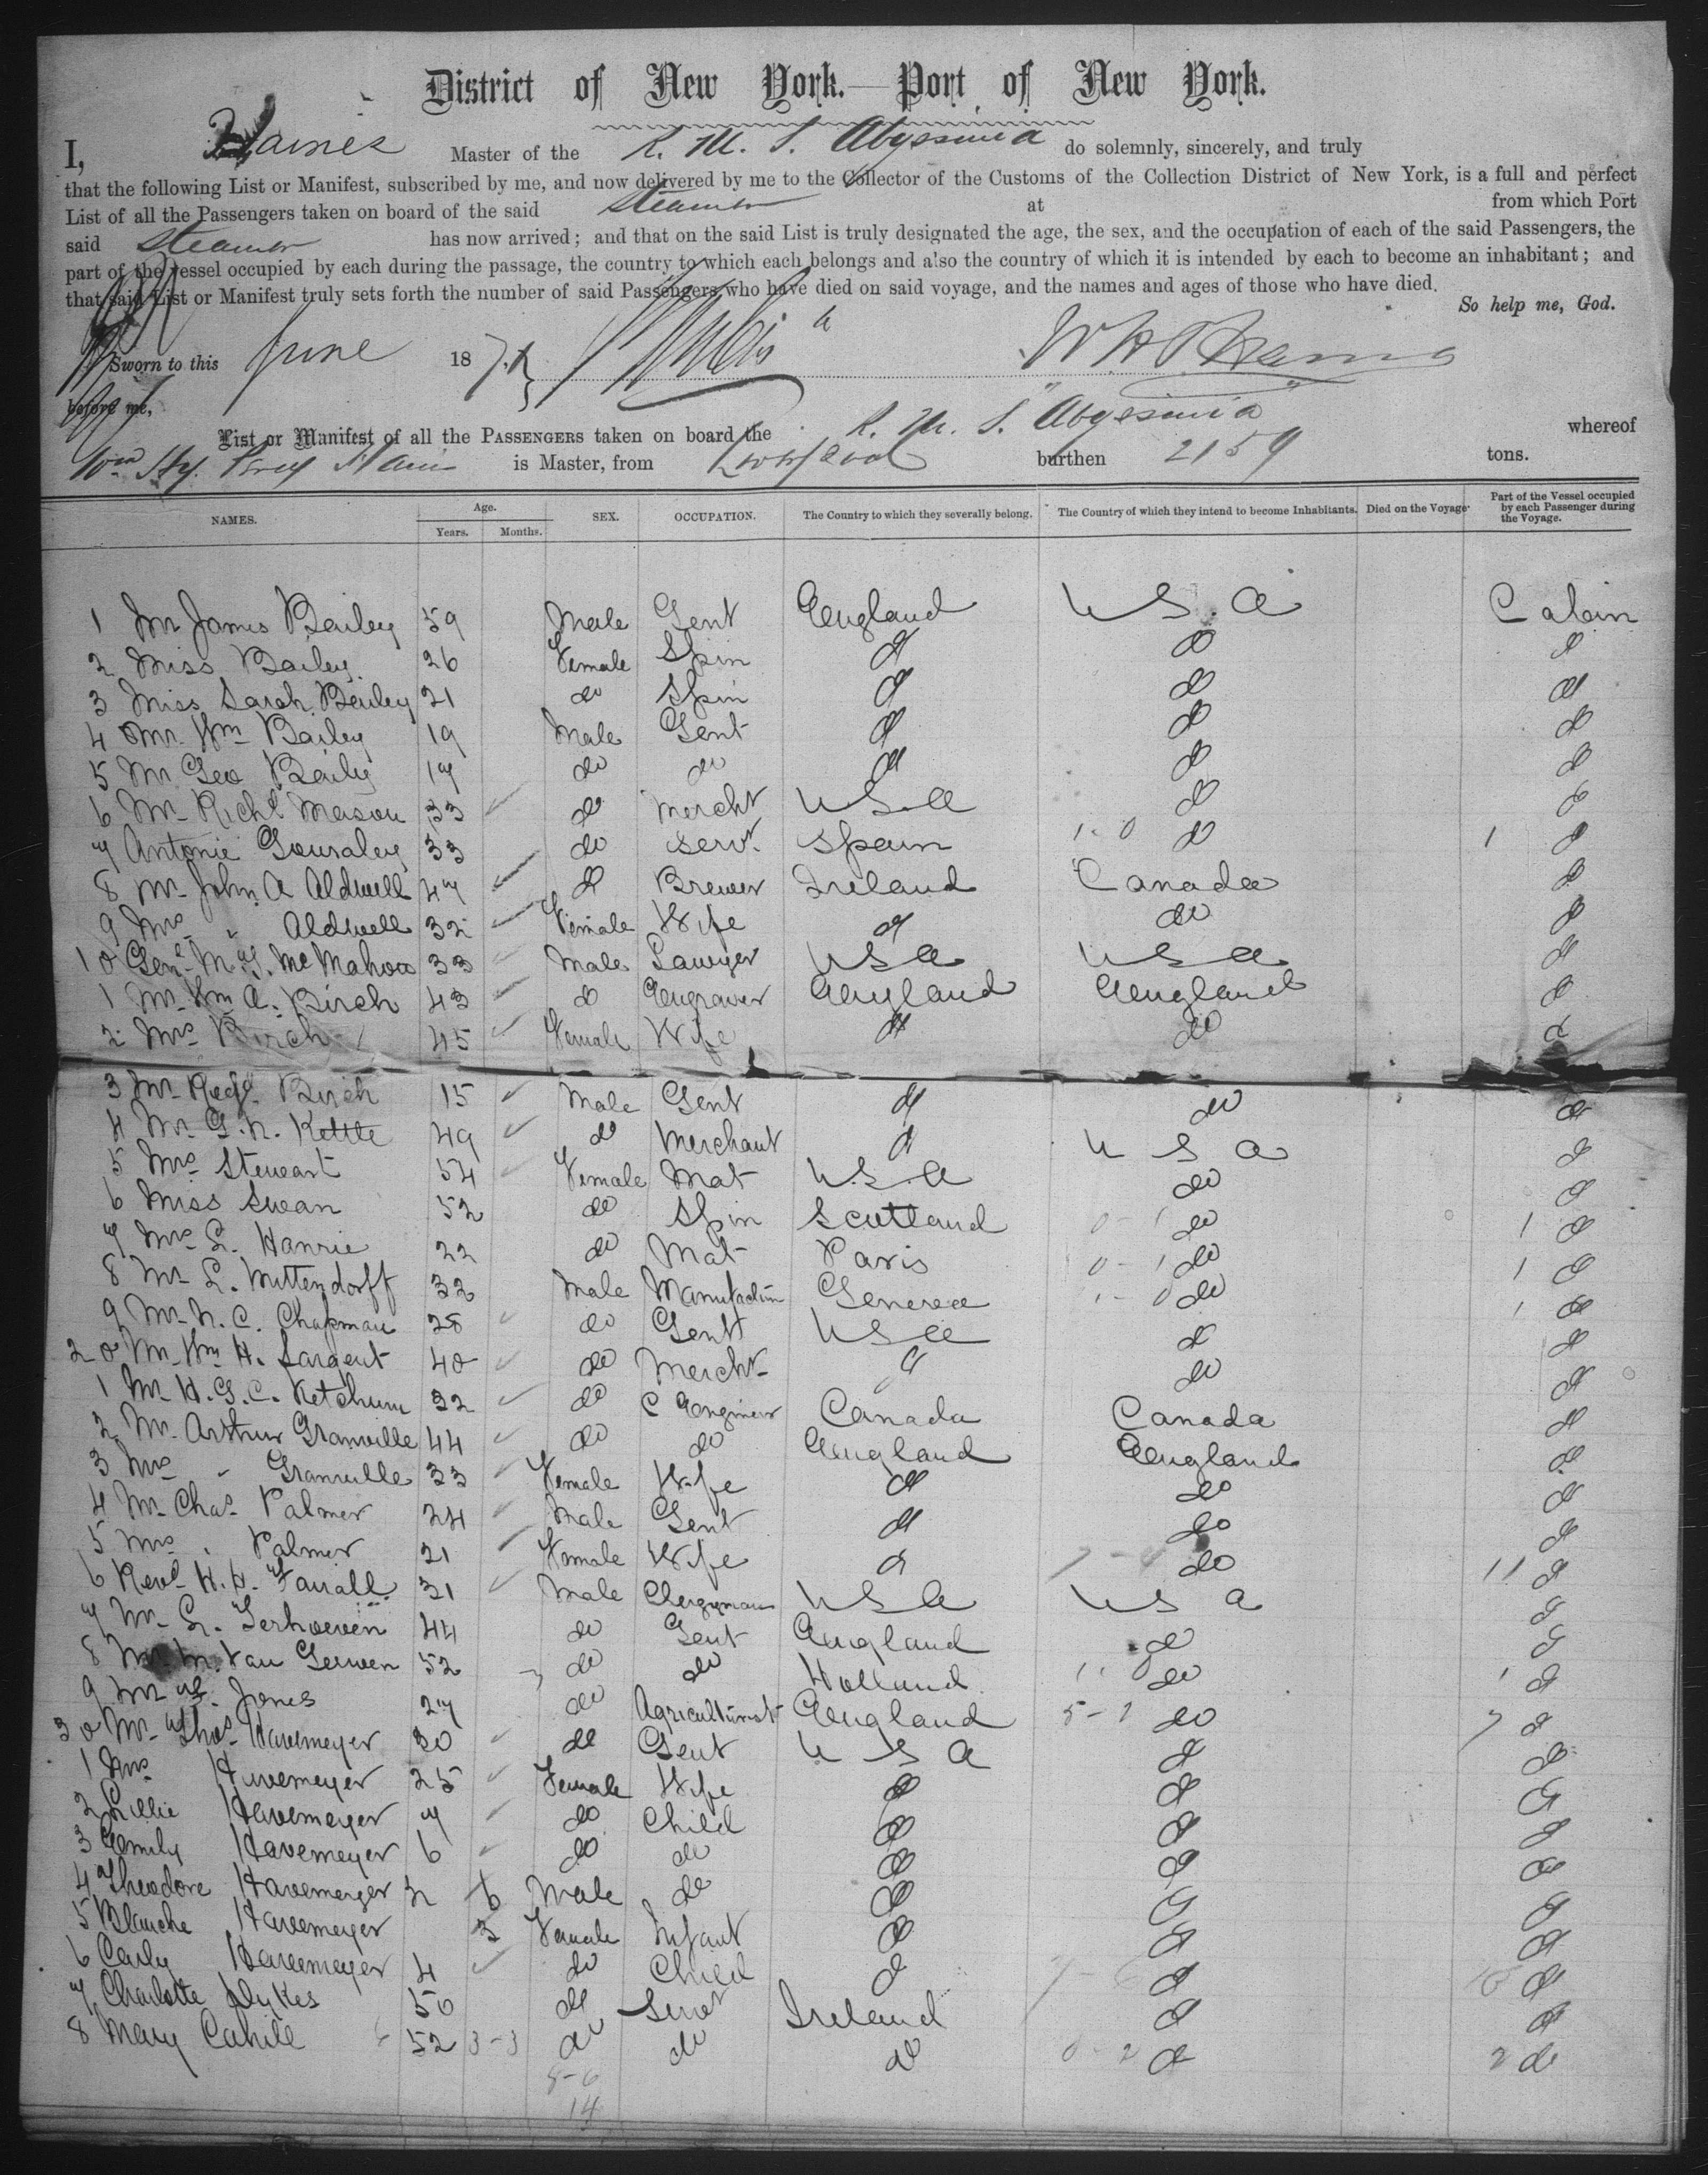 District of New York.—Port of New York.
I, Haines Master of the R. M. S. Abyssinia do solemnly, sincerely, and truly
that the following List or Manifest, subscribed by me, and now delivered by me to the Collector of the Customs of the Collection District of New York, is a full and perfect
List of all the Passengers taken on board of the said Steamer at from which Port
said Steamer has now arrived; and that on the said List is truly designated the age, the sex, and the occupation of each of the said Passengers, the
part of the vessel occupied by each during the passage, the country to which each belongs and also the country of which it is intended by each to become an inhabitant; and
that said List or Manifest truly sets forth the number of said Passengers who have died on said voyage, and the names and ages of those who have died.
So help me, God.
Sworn to this June 187
before me,
List or Manifest of all the PASSENGERS taken on board the R. M. S. "Abyssinia" whereof
Wm Hy. is Master, from Liverpool burthen 2159 tons.
NAMES. Age. Years. Months. SEX. OCCUPATION. The Country to which they severally belong. The Country of which they intend to become Inhabitants. Died on the Voyage. Part of the Vessel occupied by each Passenger during the Voyage.
1 Mr James Bailey 59 Male Gent England U S. A Cabin
2 Miss Bailey 26 Female Spin do do do
3 Miss Sarah Bailey 21 do Spin do do do
4 Mr Wm Bailey 19 Male Gent do do do
5 Mr Geo Baily 17 do do do do do
6 Mr Richd Mason 33 do Mercht U S. A do do
7 Antonie 33 do Servt Spain 1-0 do 1 do
8 Mr John A Aldwell 47 do Brewer Ireland Canada do
9 Mrs " Aldwell 32 Female Wife do do do
10 Genl M. T. McMahon 33 Male Lawyer U S A U S A do
1 Mr Wm A. Birch 43 do Engraver England England do
2 Mrs Birch 45 Female Wife do do do
3 Mr Regd Birch 15 Male Gent do do do
4 Mr G. N. Kettle 49 do Merchant do U S A do
5 Mrs Stewart 54 Female Mat U. S. A do do
6 Miss Swan 52 do Spin Scotland 0-1 do 1 do
7 Mrs L. Hanrie 22 do Mat Paris 0-1 do 1 do
8 Mr L. Mittendorff 32 Male Geneva 1-0 do 1 do
9 Mr N. C. Chapman 28 do Gent U S A do do
20 Mr Wm H. Sargent 40 do Mercht do do do
1 Mr H. G. C. Ketchum 32 do C Engineer Canada Canada do
2 Mr Arthur Granville 44 do do England England do
3 Mrs " Granville 33 Female Wife do do do
4 Mr Chas Palmer 24 Male Gent do do do
5 Mrs " Palmer 21 Female Wife do do 11 do
6 Revd H. H. Farrall 31 Male Clergyman U S A U S A do
7 Mr L. Terhoeven 44 do Gent England do do
8 Mr M. Van Gerwen 52 do do Holland do 1 do
9 Mr Jones 27 do Agriculturist England do 7 do
30 Mr Thos Havemeyer 30 do Gent U S A do do
1 Mrs Havemeyer 25 Female Wife do do do
2 Lillie Havemeyer 7 do Child do do do
3 Emily Havemeyer 6 do do do do do
4 Theodore Havemeyer 2 6 Male do do do do
5 Blanche Havemeyer 3 Female Infant do do do
6 Carly Havemeyer 4 do Child do do do
7 Charlotte Dykes 50 do Servt Ireland do do
8 Mary Cahill 52 3-3 do do do 0-2 do 2 do
8-6
14